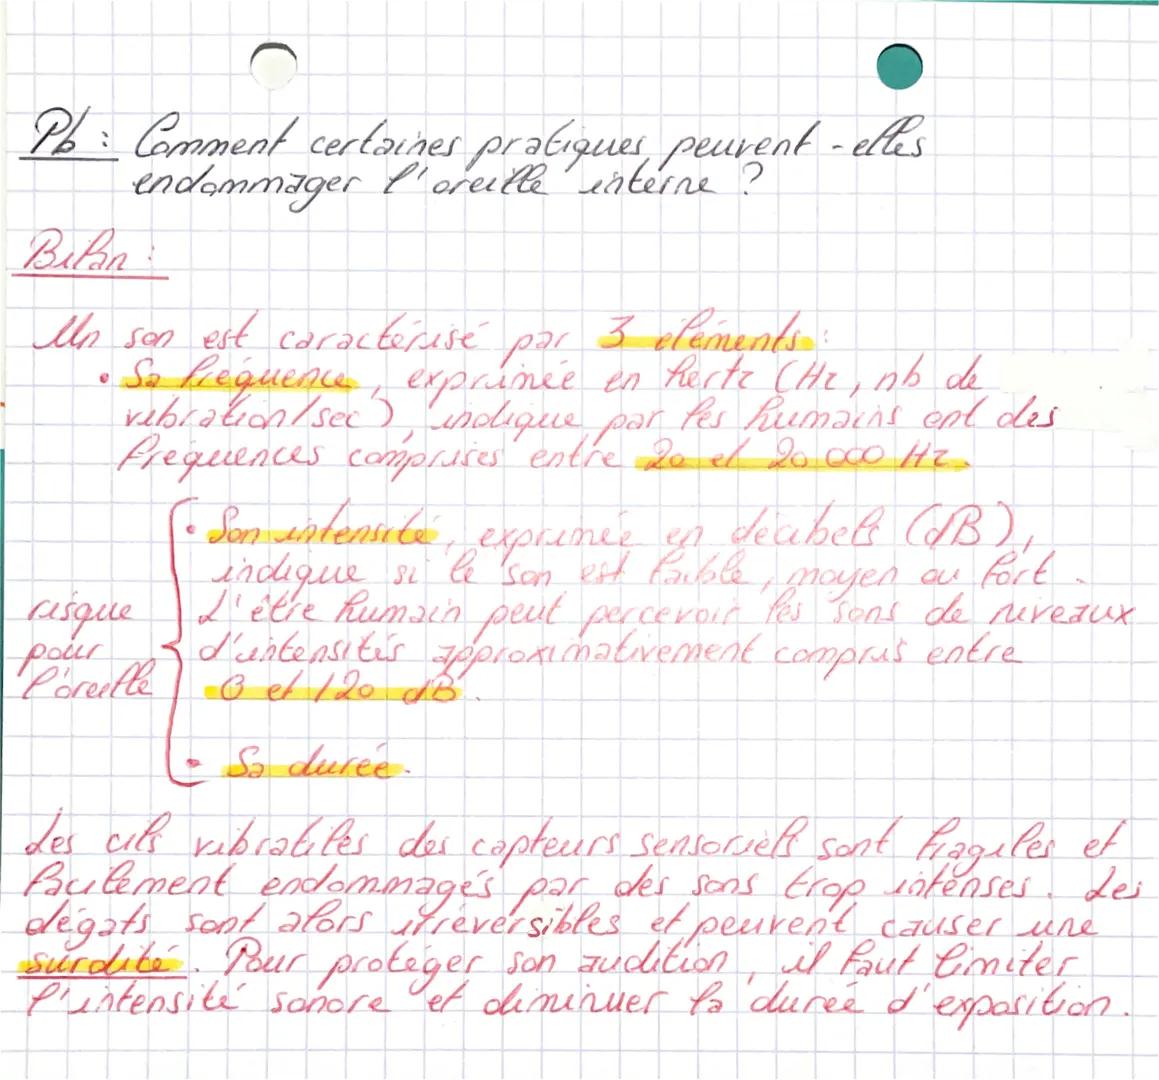 Pb : Comment certaines pratiques peuvent-elles
endommager l'oreille interne ?
Bilan :
Un son est caractérisé par 3 éléments :
• Sa fréquence, exprimée en hertz (Hz, nb de
vibration/sec), indique par les humains ont des
fréquences comprises entre 20 et 20 000 Hz.
• Son intensité, exprimée en décibels (dB),
indique si le son est faible, moyen ou fort.
L'être humain peut percevoir les sons de niveaux
d'intensités approximativement compris entre
0 et 120 dB.
risque
pour
l'oreille
• Sa durée.
Les cils vibratiles des capteurs sensoriels sont fragiles et
facilement endommagés par des sons trop intenses. Les
dégats sont alors irréversibles et peuvent causer une
surdité. Pour protéger son audition, il faut limiter
l'intensité sonore et diminuer la durée d'exposition.